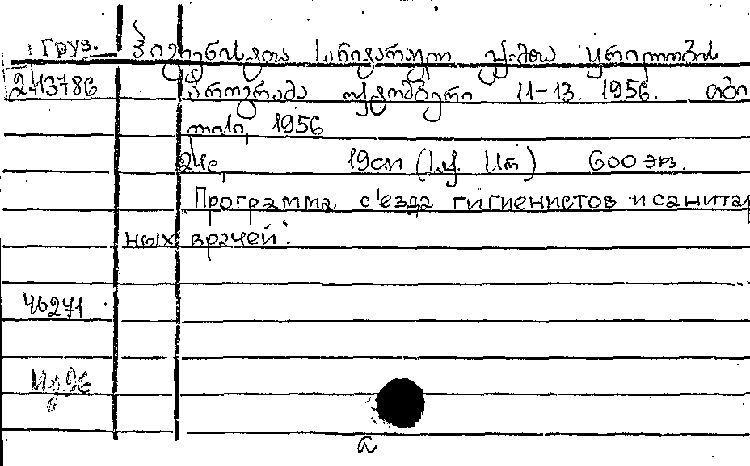 груз. ჰიგიენისტთა სანიტარულ ექიმთა ყრილობის
243786 პროგრამა ოქტომბერი 11-13 1956. თბი
ლისი, 1956
24с, 19см ( ) 600 экз.
Программа съезда гигиенистов и санитар
ных врачей.
46271